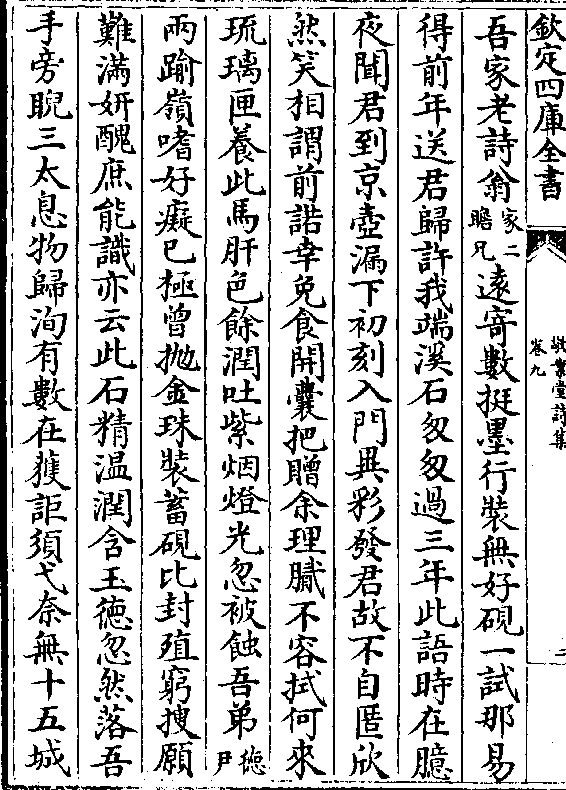 欽定四庫全書
敬業堂詩集
卷九
二
吾家老詩翁家二瞻兄遠寄數挺墨行裝無好硯一試那易
得前年送君歸許我端溪石匆匆過三年此語時在臆
夜聞君到京壺漏下初刻入門異彩發君故不自匿欣
然笑相謂前諾幸免食開囊把贈余理膩不容拭何來
琉璃匣養此馬肝色餘潤吐紫烟燈光忽被蝕吾弟德尹
兩踰嶺嗜好癡已極曾拋金珠裝蓄硯比封殖窮搜願
難滿妍醜庶能識亦云此石精温潤含玉德忽然落吾
手旁睨三太息物歸洵有數在獲詎須弋奈無十五城